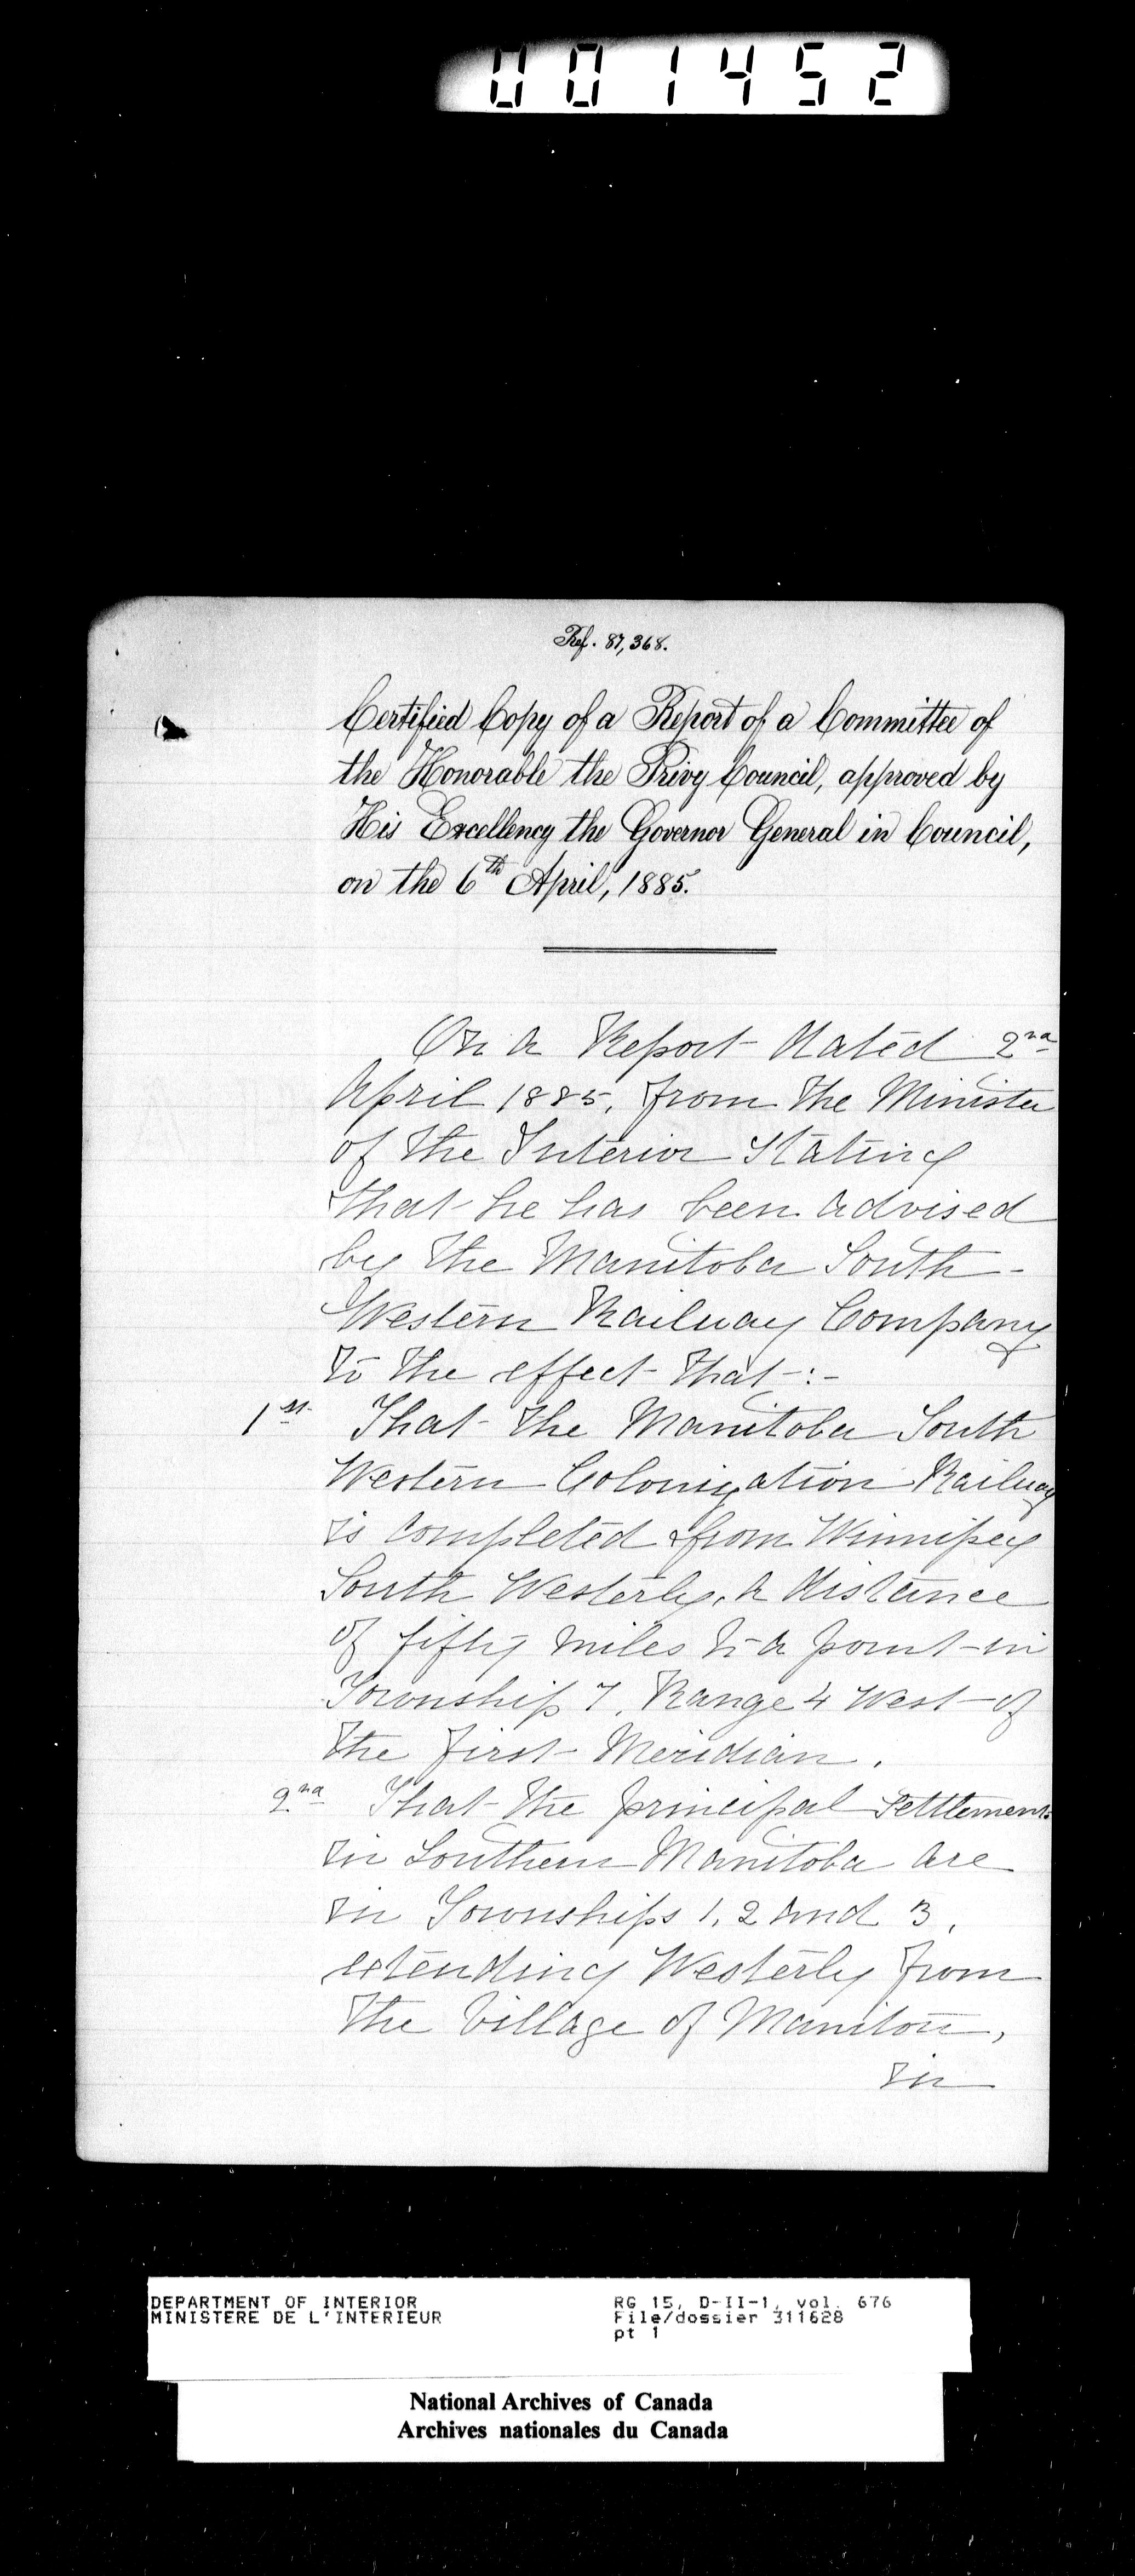 001452
Ref. 87,368.
Certified Copy of a Report of a Committee of
the Honorable the Privy Council, approved by
His Excellency the Governor General in Council,
on the 6th April, 1885.
On a Report dated 2nd
April 1885, from the Minister
of the Interior Stating
that he has been advised
by the Manitoba South-
Western Railway Company
to the effect that:-
1st That the Manitoba South
Western Colonization Railway
is completed from Winnipeg
South Westerly, a distance
of fifty miles to a point in
Township 7, Range 4 West of
the first Meridian.
2nd That the principal Settlements
in Southern Manitoba are
in Townships 1, 2 and 3,
extending Westerly from
the Village of Manitou,
in
DEPARTMENT OF INTERIOR
MINISTERE DE L'INTERIEUR
RG 15, D-II-1, vol. 676
File/dossier 311628
pt 1
National Archives of Canada
Archives nationales du Canada